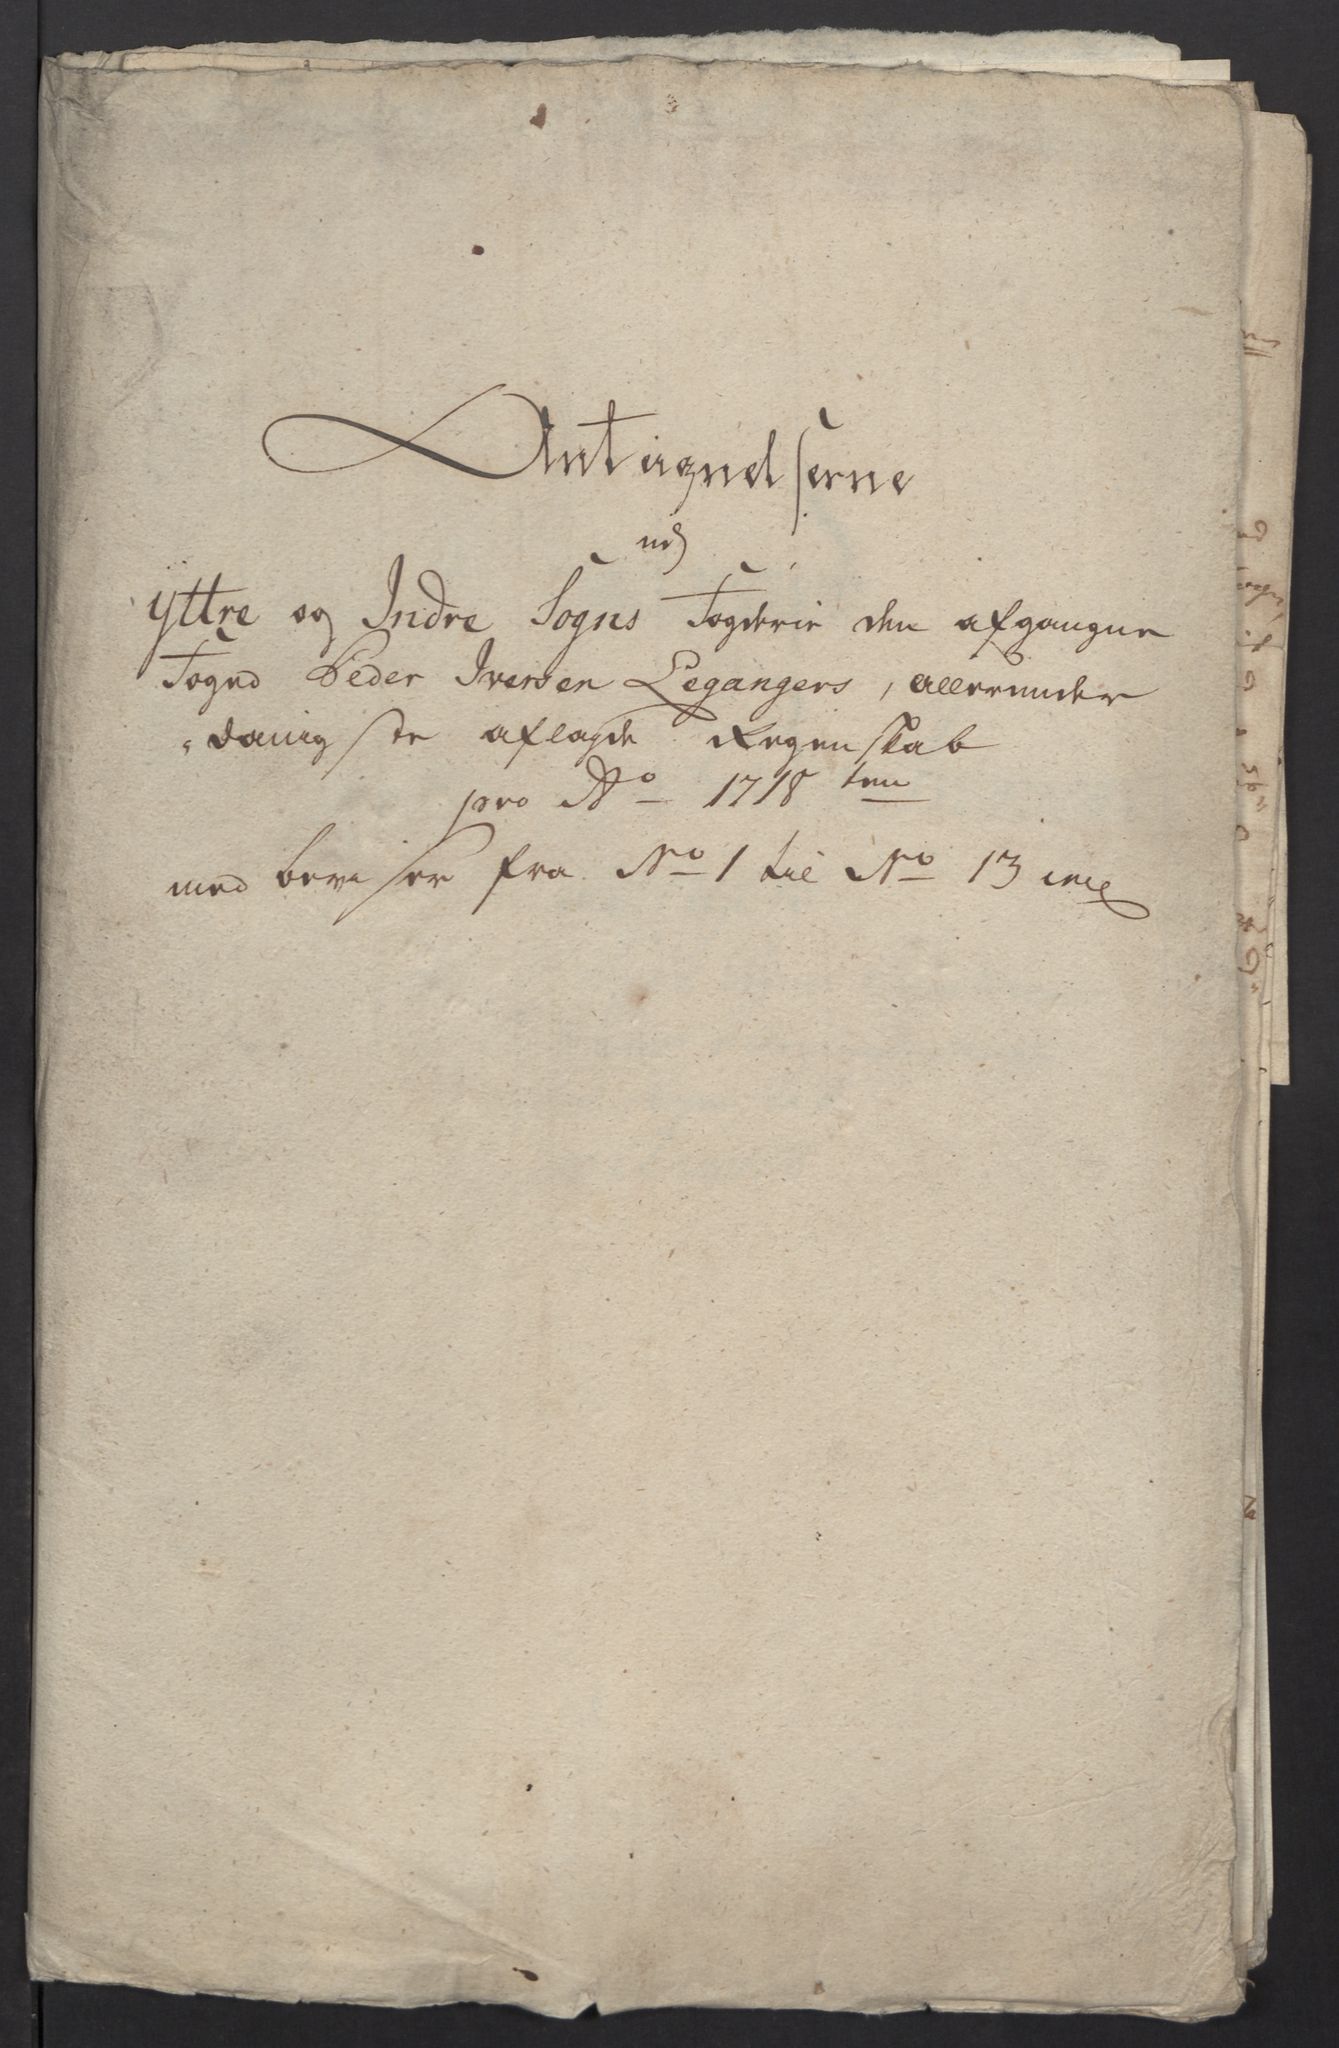 Antegnelserne
ved
Yttre og Indre Sogns Fogderie den afgangne
Foged Peder Iversen Legangers, allerunder
danigste aflagde Regenskab
pro Ao 1718 ten
med beviser fra No 1 til No 13 incl